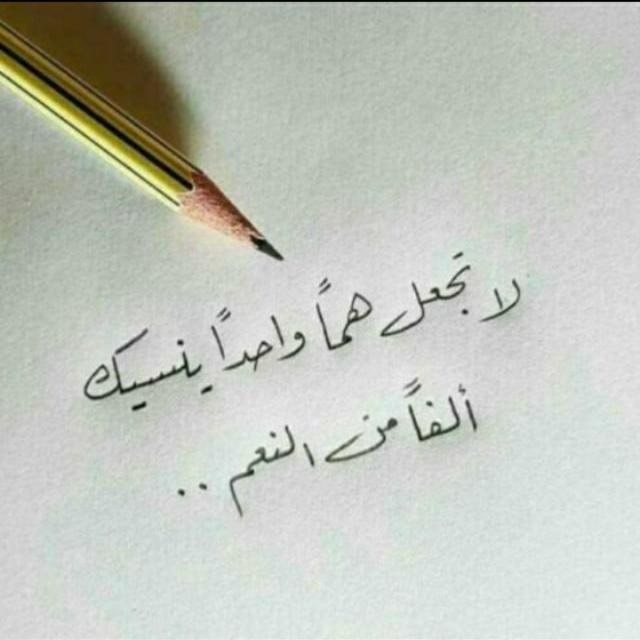 لا تجعل هماً واحداً ينسيك
ألفاً من النعم ..